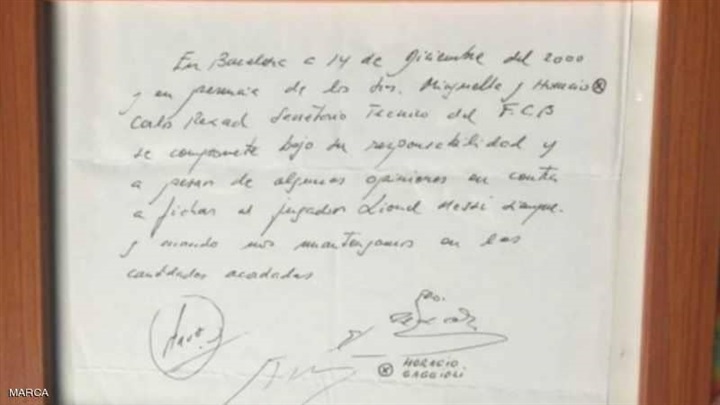 En Barcelona a 14 de Diciembre del 2000
y en presencia de los Srs. Minguella y Horacio ⊗
Carlos Rexach Secretario Tecnico del F.C.B
se compromete bajo su responsabilidad y
a pesar de algunas opiniones en contra
a fichar al jugador Lionel Messi siempre
y cuando nos mantengamos en las
cantidades acordadas
⊗ HORACIO
GAGGIOLI
MARCA